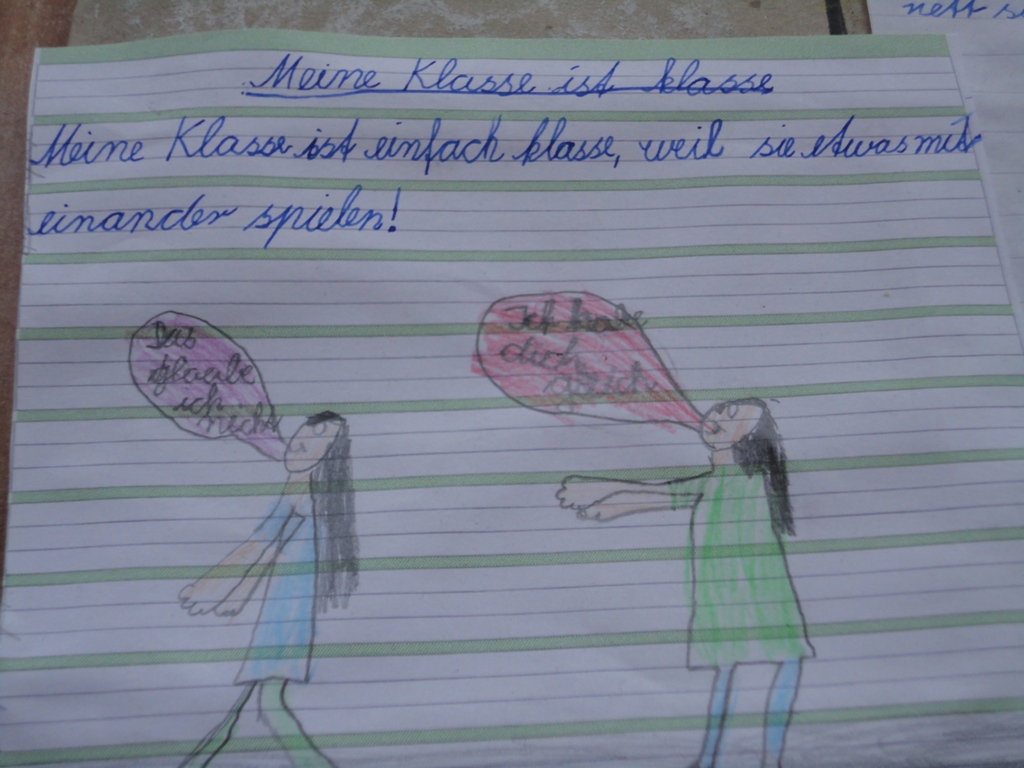 nett s
Meine Klasse ist klasse
Meine Klasse ist einfach klasse, weil sie etwas mit
einander spielen!
Das
glaube
ich
nicht
Ich habe
dich
gleich